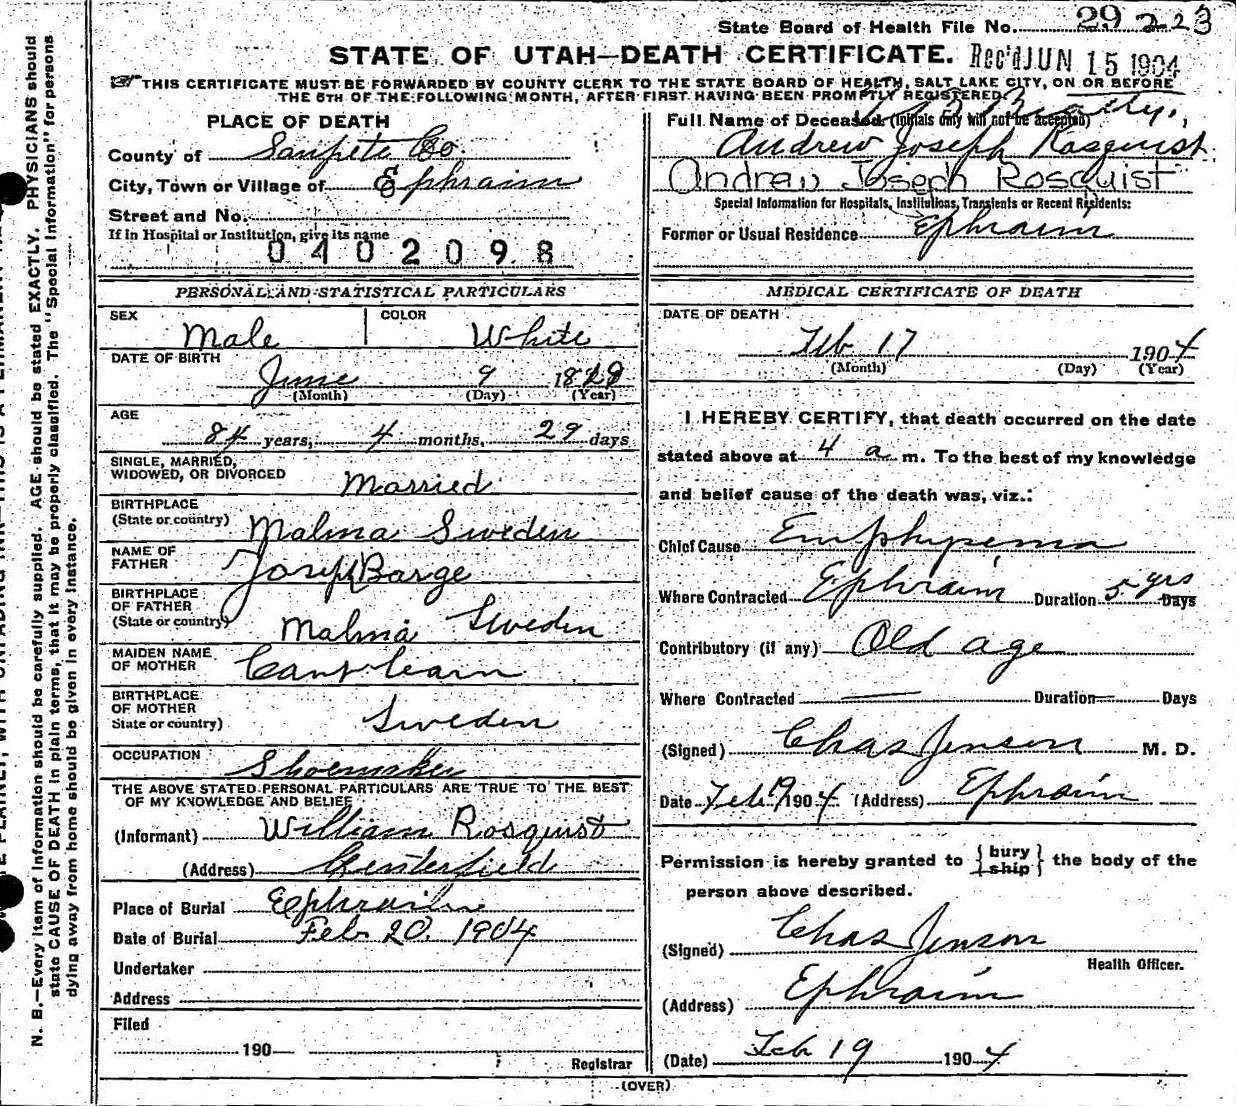 State Board of Health File No. 29 223
STATE OF UTAH—DEATH CERTIFICATE. Rec'd JUN 15 1904
☞ THIS CERTIFICATE MUST BE FORWARDED BY COUNTY CLERK TO THE STATE BOARD OF HEALTH, SALT LAKE CITY, ON OR BEFORE
THE 6TH OF THE FOLLOWING MONTH, AFTER FIRST HAVING BEEN PROMPTLY REGISTERED
PLACE OF DEATH
County of Sanpete Co.
City, Town or Village of Ephraim
Street and No.
If in Hospital or Institution, give its name
0402098
PERSONAL AND STATISTICAL PARTICULARS
SEX Male COLOR White
DATE OF BIRTH
June 9
(Month) (Day) (Year)
AGE
84 years, 4 months, 29 days
SINGLE, MARRIED,
WIDOWED, OR DIVORCED Married
BIRTHPLACE
(State or country) Malma Sweden
NAME OF
FATHER Joseph Barge
BIRTHPLACE
OF FATHER
(State or country) Malma Sweden
MAIDEN NAME
OF MOTHER Cant learn
BIRTHPLACE
OF MOTHER
State or country) Sweden
OCCUPATION Shoemaker
THE ABOVE STATED PERSONAL PARTICULARS ARE TRUE TO THE BEST
OF MY KNOWLEDGE AND BELIEF
(Informant) William Rosquist
(Address) Centerfield
Place of Burial Ephraim
Date of Burial Feb 20, 1904
Undertaker
Address
Filed
190
Registrar
Full Name of Deceased (Initials only will not be accepted)
Andrew Joseph Rasquist
Andrew Joseph Rosquist
Special Information for Hospitals, Institutions, Transients or Recent Residents:
Former or Usual Residence Ephraim
MEDICAL CERTIFICATE OF DEATH
DATE OF DEATH
Feb 17 1904
(Month) (Day) (Year)
I HEREBY CERTIFY, that death occurred on the date
stated above at 4 a m. To the best of my knowledge
and belief cause of the death was, viz.:
Chief Cause Emphysema
Where Contracted Ephraim Duration 5 yrs Days
Contributory (if any) Old age
Where Contracted Duration Days
(Signed) Chas Jenson M. D.
Date Feb 19 1904 (Address) Ephraim
Permission is hereby granted to {bury
ship} the body of the
person above described.
(Signed) Chas Jenson
Health Officer.
(Address) Ephraim
(Date) Feb 19 1904
(OVER)
N. B.—Every item of information should be carefully supplied. AGE should be stated EXACTLY. PHYSICIANS should
state CAUSE OF DEATH in plain terms, that it may be properly classified. The "Special Information" for persons
dying away from home should be given in every instance.